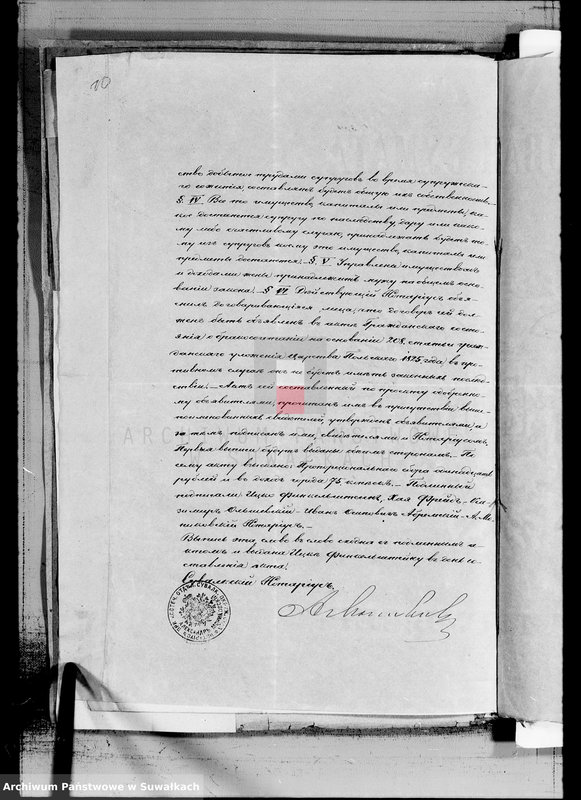 10
ство добытое трудами супруговъ во время супружеска-
го сожитія, составлять будетъ общую ихъ собственность.
§ IV Все то имущество, капиталы или предметы, ка-
кое достанется супругу по наслѣдству, дару или ино-
му либо счастливому случаю, принадлежать будетъ то-
му изъ супруговъ кому это имущество, капиталы или
предметы достанутся. § V Управленіе имуществомъ
и доходами жены принадлежитъ мужу на общемъ осно-
ваніи закона. § VI Дѣйствующій Нотаріусъ объя-
снилъ договаривающимся лицамъ, что договоръ сей дол-
женъ быть объявленъ въ актѣ Гражданскаго состо-
янія о бракосочетаніи на основаніи 208 статьи граж-
данскаго уложенія Царства Польскаго 1825 года, въ про-
тивномъ случаѣ онъ не будетъ имѣть законныхъ послѣд-
ствій. – Актъ сей составленный по проекту сообщенно-
му объявителями, прочитанъ имъ въ присутствіи выше-
поименованныхъ свидѣтелей, утвержденъ объявителями, а
за тѣмъ подписанъ ими, свидѣтелями и Нотаріусомъ.
Первыя выписи будутъ выданы обѣимъ сторонамъ. По
сему акту взыскано: Пропорціональнаго сбора
рублей и въ доходъ города 75 копѣекъ. – Подлинный
подписали: Ицко Финкельштейнъ, Хая Фрейдъ – Ка-
зимиръ Ольшевскій – Иванъ Осиповичъ Абрамскій – А. Ме-
Нотаріусъ. –
Выпись эта слово въ слово сходна съ подлиннымъ а-
ктомъ и выдана Ицкѣ Финкельштейну въ день со-
ставленія акта.
Сувалкскій Нотаріусъ,
ARCHIWUM
Archiwum Państwowe w Suwałkach